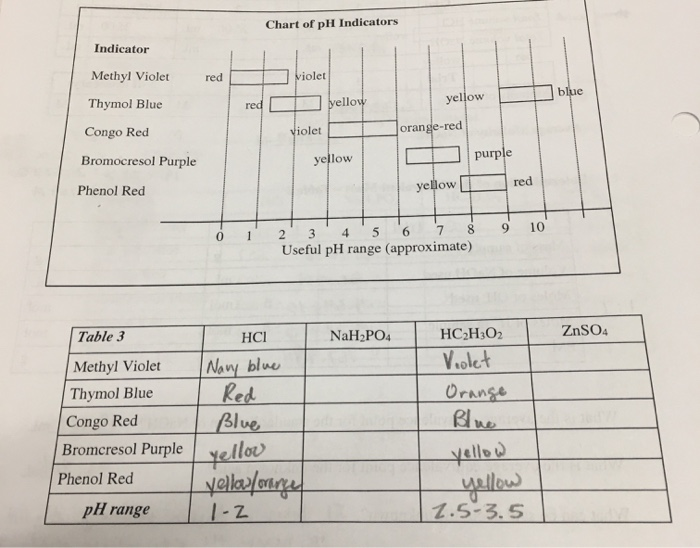 Chart of pH Indicators
Indicator
Methyl Violet red violet
Thymol Blue red yellow yellow blue
Congo Red violet orange-red
Bromocresol Purple yellow purple
Phenol Red yellow red
0 1 2 3 4 5 6 7 8 9 10
Useful pH range (approximate)
Table 3 HCl NaH₂PO₄ HC₂H₃O₂ ZnSO₄
Methyl Violet Navy blue Violet
Thymol Blue Red Orange
Congo Red Blue Blue
Bromcresol Purple yellow yellow
Phenol Red yellow/orange yellow
pH range 1-2 2.5-3.5